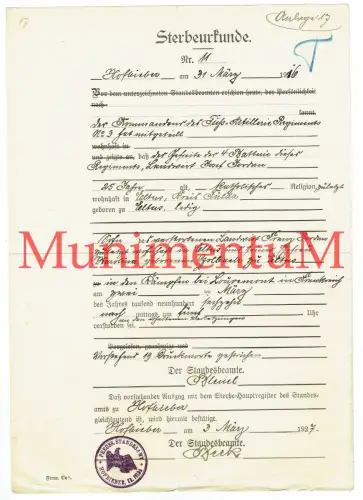 17
Anlage 17
Sterbeurkunde.
Nr. 11
Hofbieber am 31 März 1916
Vor dem unterzeichneten Standesbeamten erschien heute, der Persönlichkeit
nach
kannt,
der Kommandeur des Fuß-Artillerie Regiments
No 3 hat mitgeteilt
wohnhaft in
und zeigte an, daß der Gefreite der 4 Batterie dieses
Regiments, Landwirt
25 Jahre alt, katholischer Religion, zuletzt
wohnhaft in Elters, Kreis Fulda
geboren zu Elters, ledig
Sohn des verstorbenen Landwirts Franz
geborene
zu Elters
MunimentuM
in den Kämpfen bei Louvemont in Frankreich
am zwei März
des Jahres tausend neunhundert sechzehn
nach mittags um fünf Uhr
an den erhaltenen Verletzungen
verstorben sei.
Vorgelesen, genehmigt und
Vorstehend 19 Druckworte gestrichen
Der Standesbeamte.
Daß vorstehender Auszug mit dem Sterbe-Hauptregister des Standes-
amts zu Hofbieber
gleichlautend ist, wird hiermit bestätigt.
Hofbieber am 3 März 1937
Der Standesbeamte.
PREUSS. STANDESAMT
HOFBIEBER, KR. FULDA